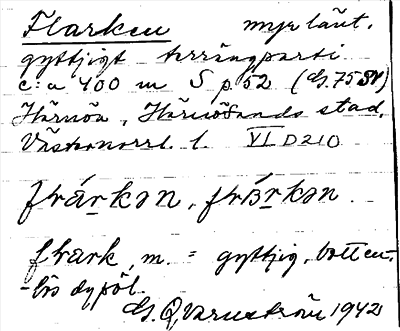 Flarken myr länt.
gyttjigt terrängparti
c:a 400 m S p. 52 (G. 75 SV)
Härnön, Härnösands stad,
Västernorrl. l. VI D210
flark, m. = gyttjig, botten-
-lös dypöl.
G. Qvarnström 1942